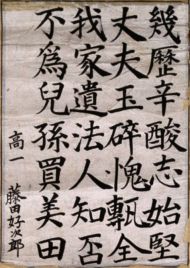 幾歴辛酸志始堅
丈夫玉砕愧甎全
我家遺法人知否
不為児孫買美田
高一
藤田好次郎